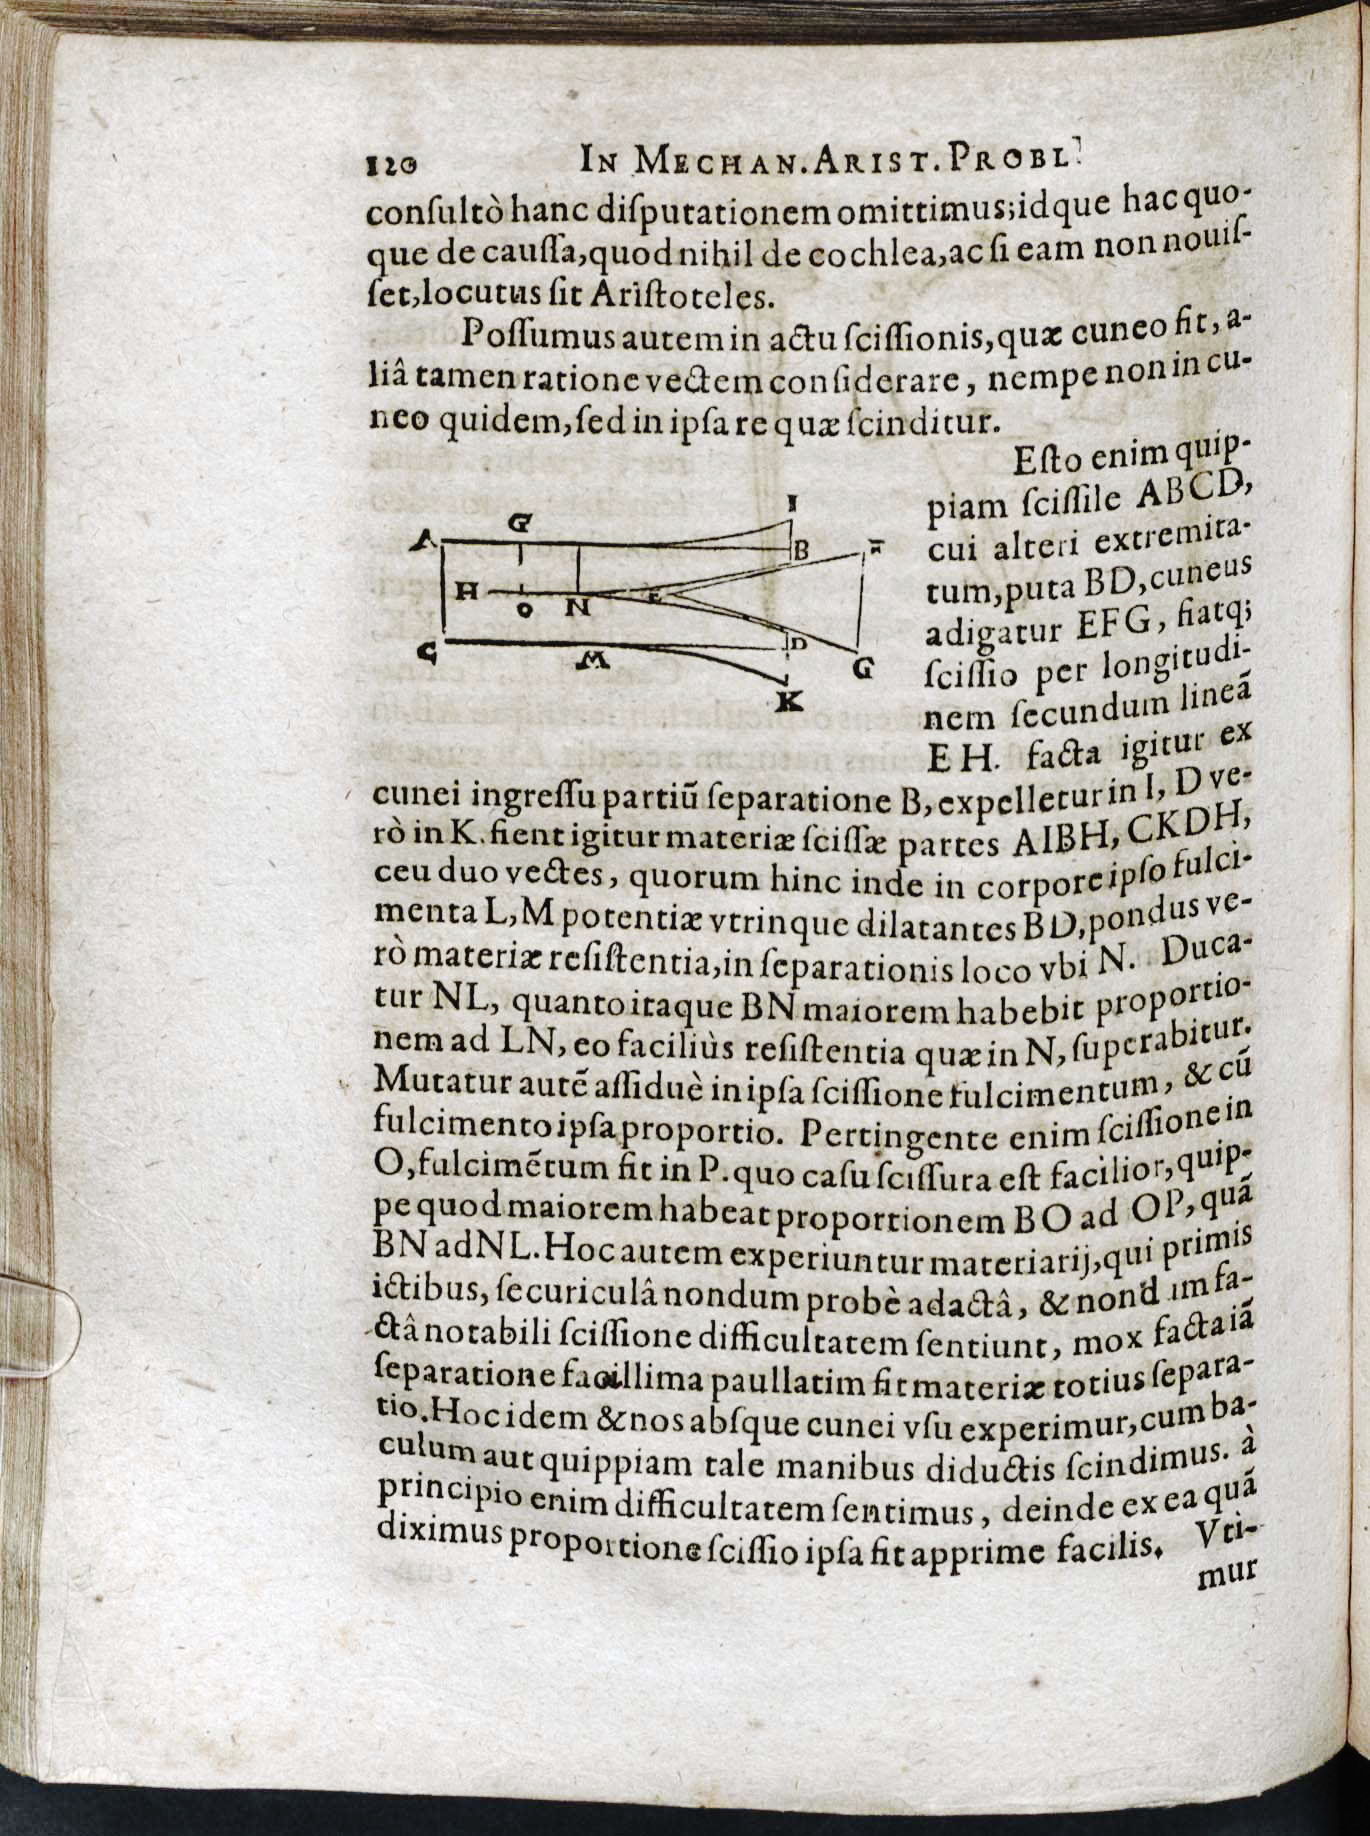 120 IN MECHAN. ARIST. PROBL.
conſultò hanc diſputationem omittimus; idque hac quo-
que de cauſſa, quod nihil de cochlea, ac ſi eam non nouiſ-
ſet, locutus ſit Ariſtoteles.
Poſſumus autem in actu ſciſſionis, quæ cuneo fit, a-
liâ tamen ratione vectem conſiderare, nempe non in cu-
neo quidem, ſed in ipſa re quæ ſcinditur.
Eſto enim quip-
piam ſciſſile ABCD,
cui alteri extremita-
tum, puta BD, cuneus
adigatur EFG, fiatq;
ſciſſio per longitudi-
nem ſecundum lineã
EH. facta igitur ex
I
G
A
B
F
H
E
O
N
D
C
M
G
K
cunei ingreſſu partiũ ſeparatione B, expelletur in I, D ve-
rò in K. fient igitur materiæ ſciſſæ partes AIBH, CKDH,
ceu duo vectes, quorum hinc inde in corpore ipſo fulci-
menta L, M potentiæ vtrinque dilatantes BD, pondus ve-
rò materiæ reſiſtentia, in ſeparationis loco vbi N. Duca-
tur NL, quanto itaque BN maiorem habebit proportio-
nem ad LN, eo faciliùs reſiſtentia quæ in N, ſuperabitur.
Mutatur autẽ aſſiduè in ipſa ſciſſione fulcimentum, & cũ
fulcimento ipſa proportio. Pertingente enim ſciſſione in
O, fulcimẽtum fit in P. quo caſu ſciſſura eſt facilior, quip-
pe quod maiorem habeat proportionem BO ad OP, quã
BN ad NL. Hoc autem experiuntur materiarij, qui primis
ictibus, ſecuriculâ nondum probè adactâ, & nondum fa-
ctâ notabili ſciſſione difficultatem ſentiunt, mox facta iã
ſeparatione facillima paullatim fit materiæ totius ſepara-
tio. Hoc idem & nos abſque cunei vſu experimur, cum ba-
culum aut quippiam tale manibus diductis ſcindimus. à
principio enim difficultatem ſentimus, deinde ex ea quã
diximus proportione ſciſſio ipſa fit apprime facilis. Vti-
mur